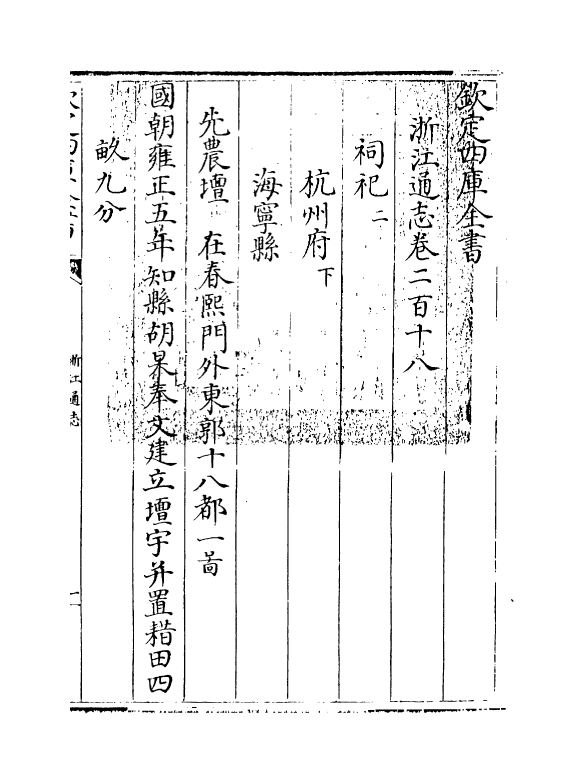 欽定四庫全書
浙江通志卷二百十八
祠祀二
杭州府下
海寧縣
先農壇 在春熙門外東郭十八都一啚
國朝雍正五年知縣胡杲奉文建立壇宇并置耤田四
畝九分
浙江通志